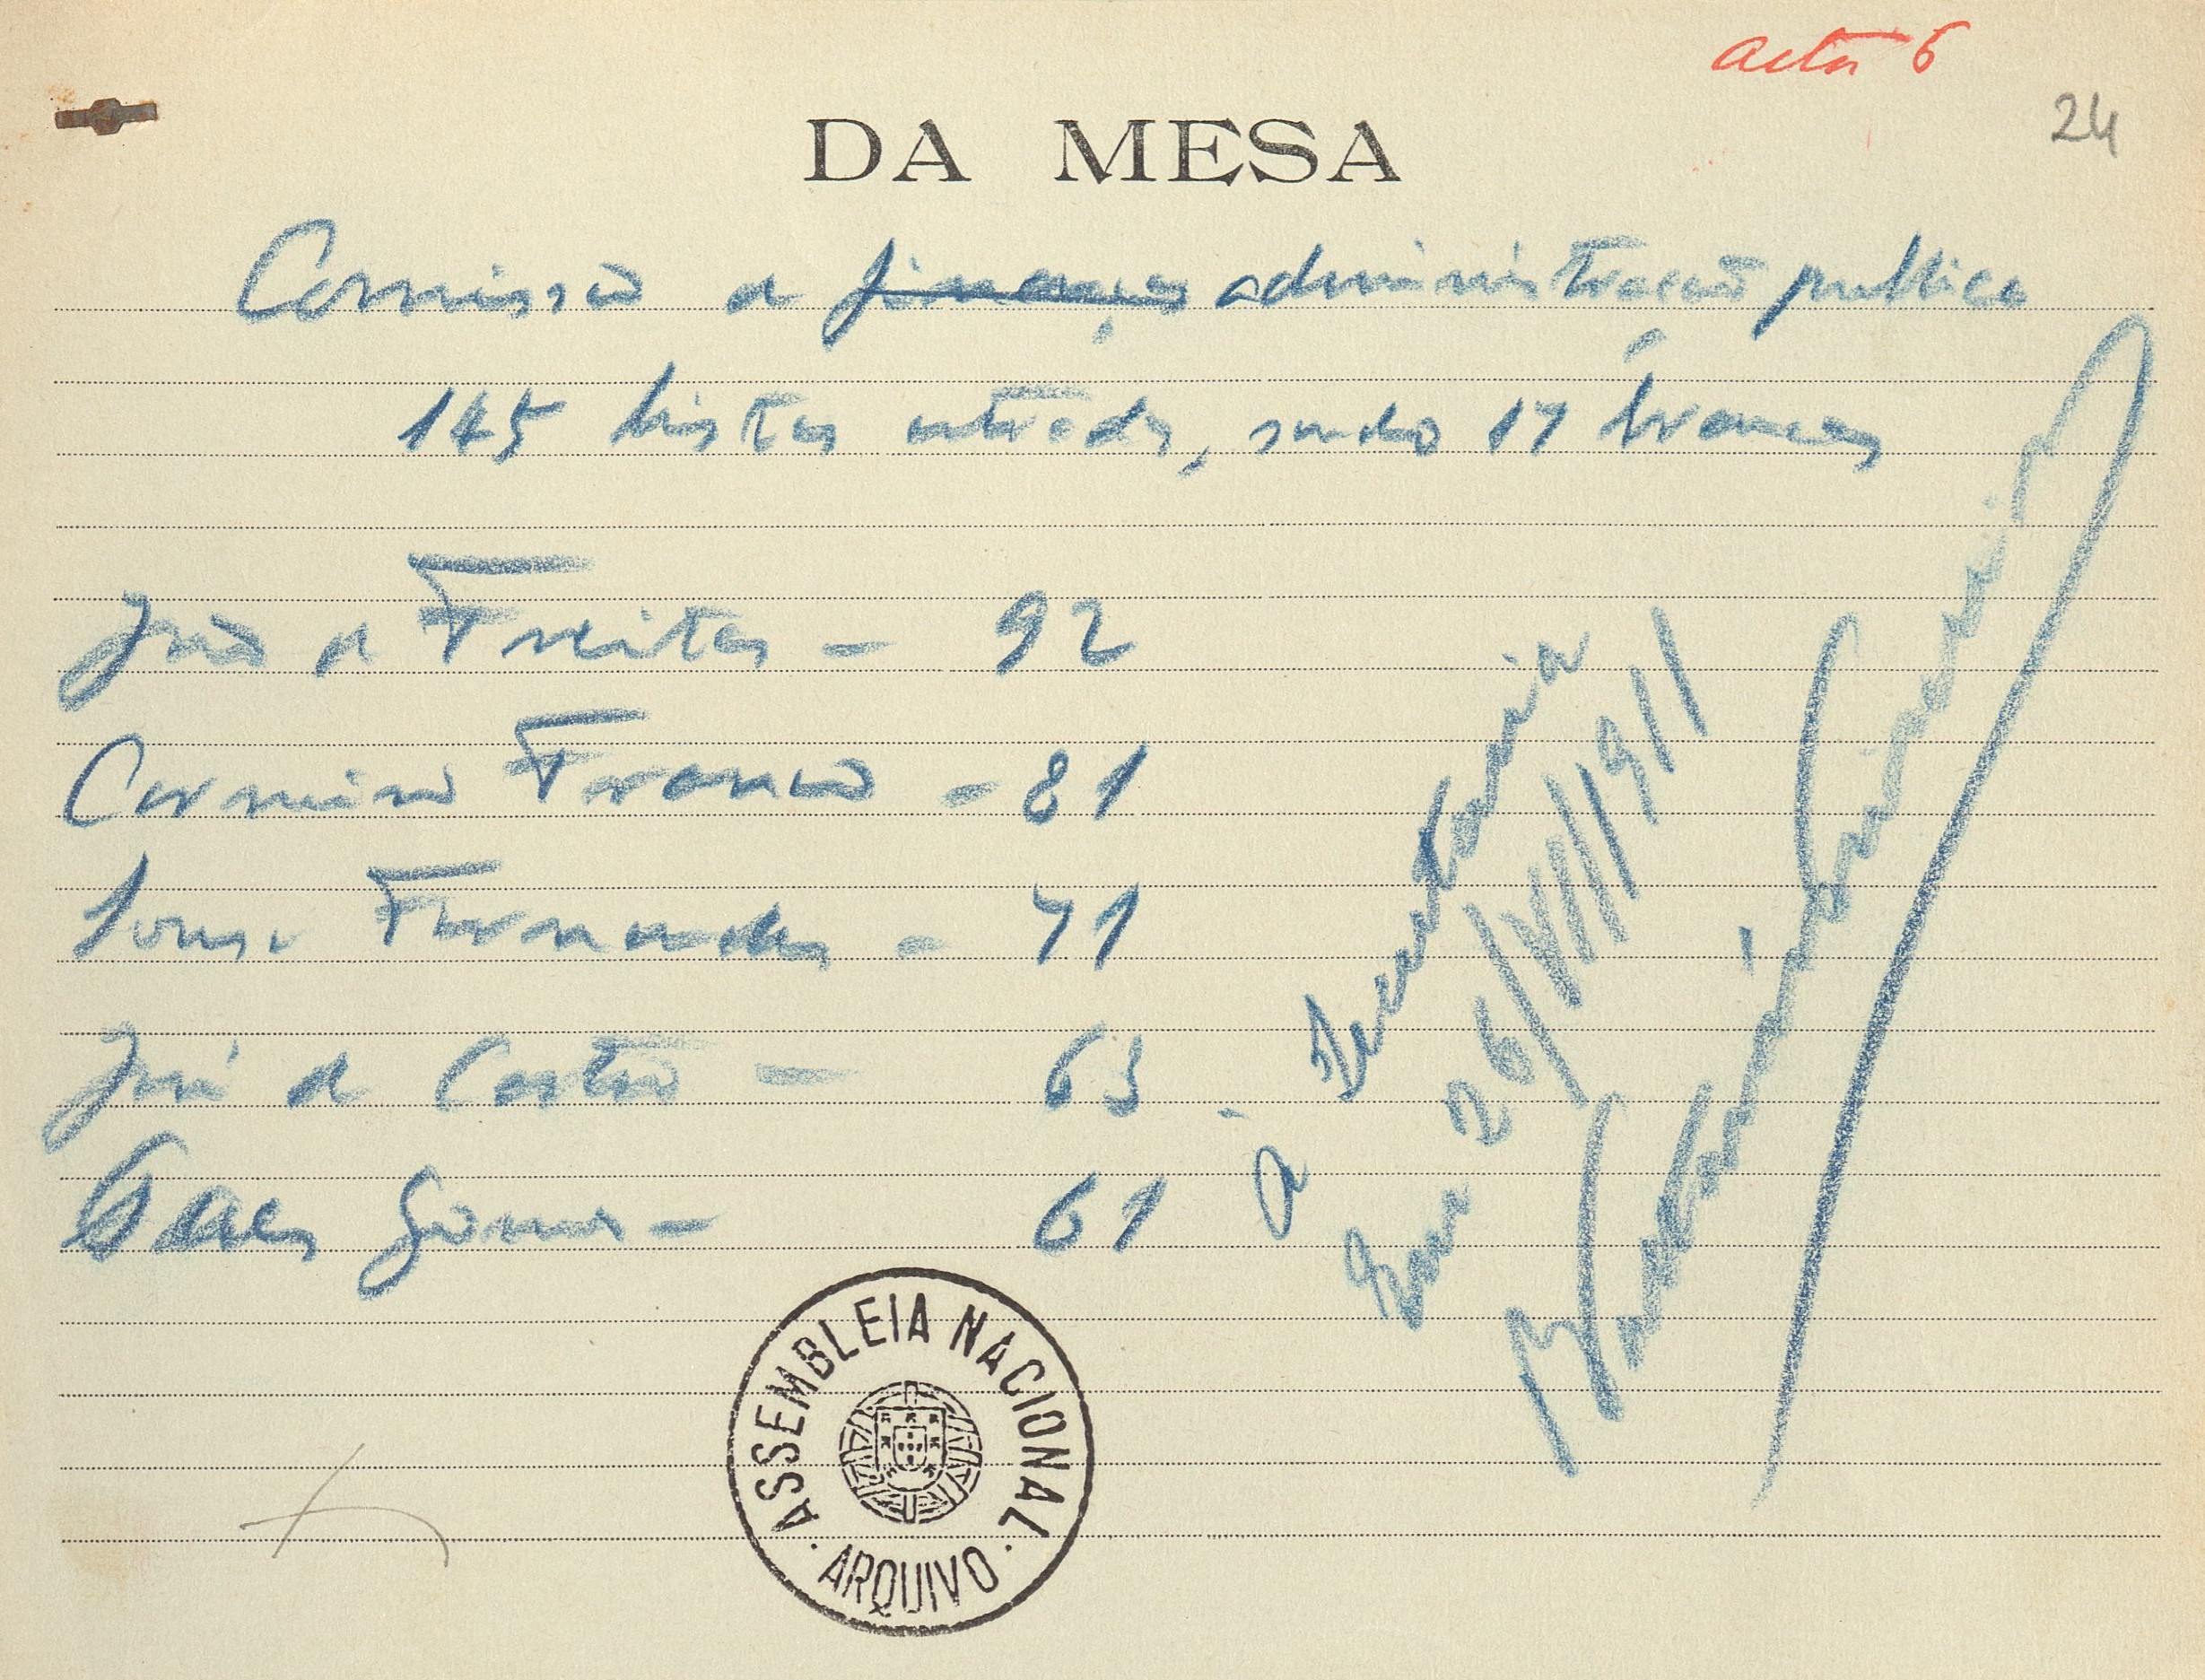 acta 6
24
DA MESA
Comissão de finanças administração publica
145 listas entradas, sendo 17 brancas
João de Freitas - 92
Carneiro Franco - 81
Sousa Fernandes - 71
José de Castro - 63
Paes Gomes - 61
A Secretaria
Em 26/VII/1911
ASSEMBLEIA NACIONAL
ARQUIVO